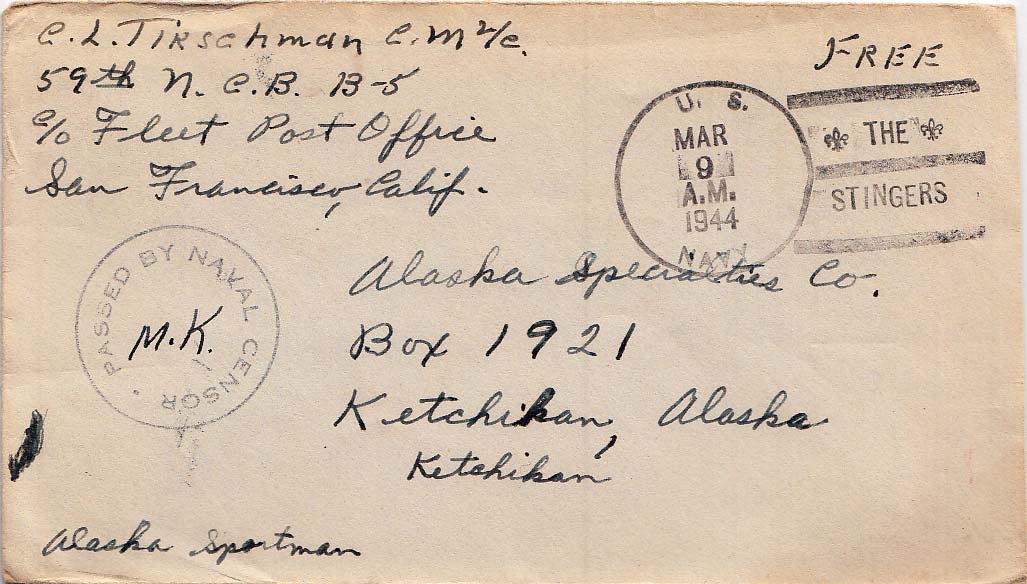 C. L. Tirschman C.M 2/c.
59th N. C.B. B-5
c/o Fleet Post Office
San Francisco, Calif.
FREE
U. S.
MAR
9
A.M.
1944
NAVY
THE
STINGERS
PASSED BY NAVAL CENSOR
M.K.
Alaska Specialties Co.
Box 1921
Ketchikan, Alaska
Ketchikan
Alaska Sportman